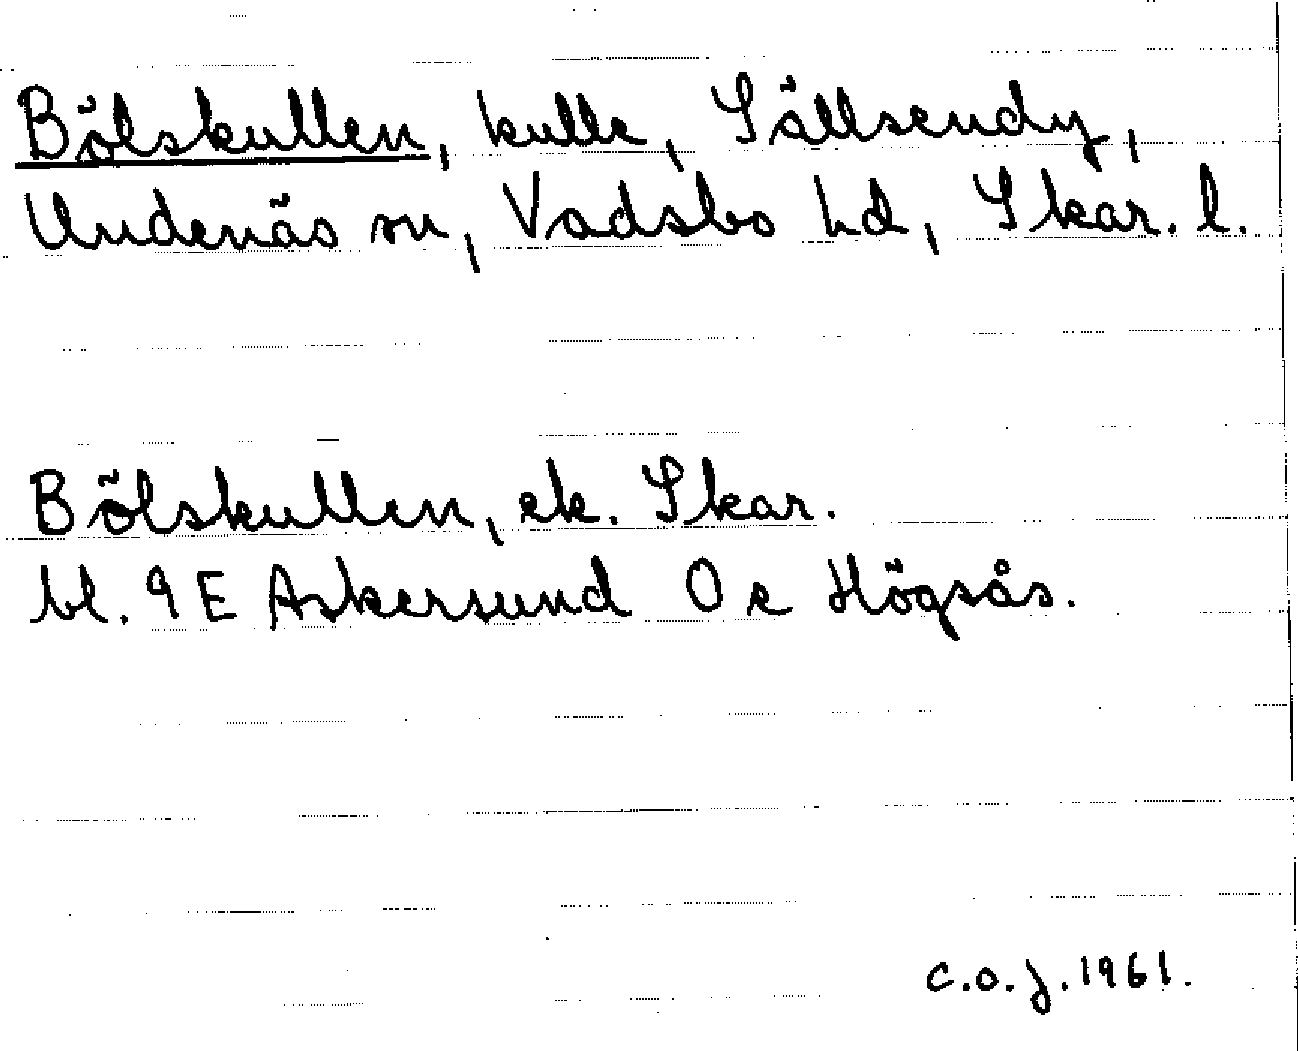 Bölskullen, kulle, Sällsendy,
Undenäs sn, Vadsbo hd, Skar. l.
Bölskullen, ek. Skar.
bl. 9 E Askersund O e Högsås.
C.O.J. 1961.